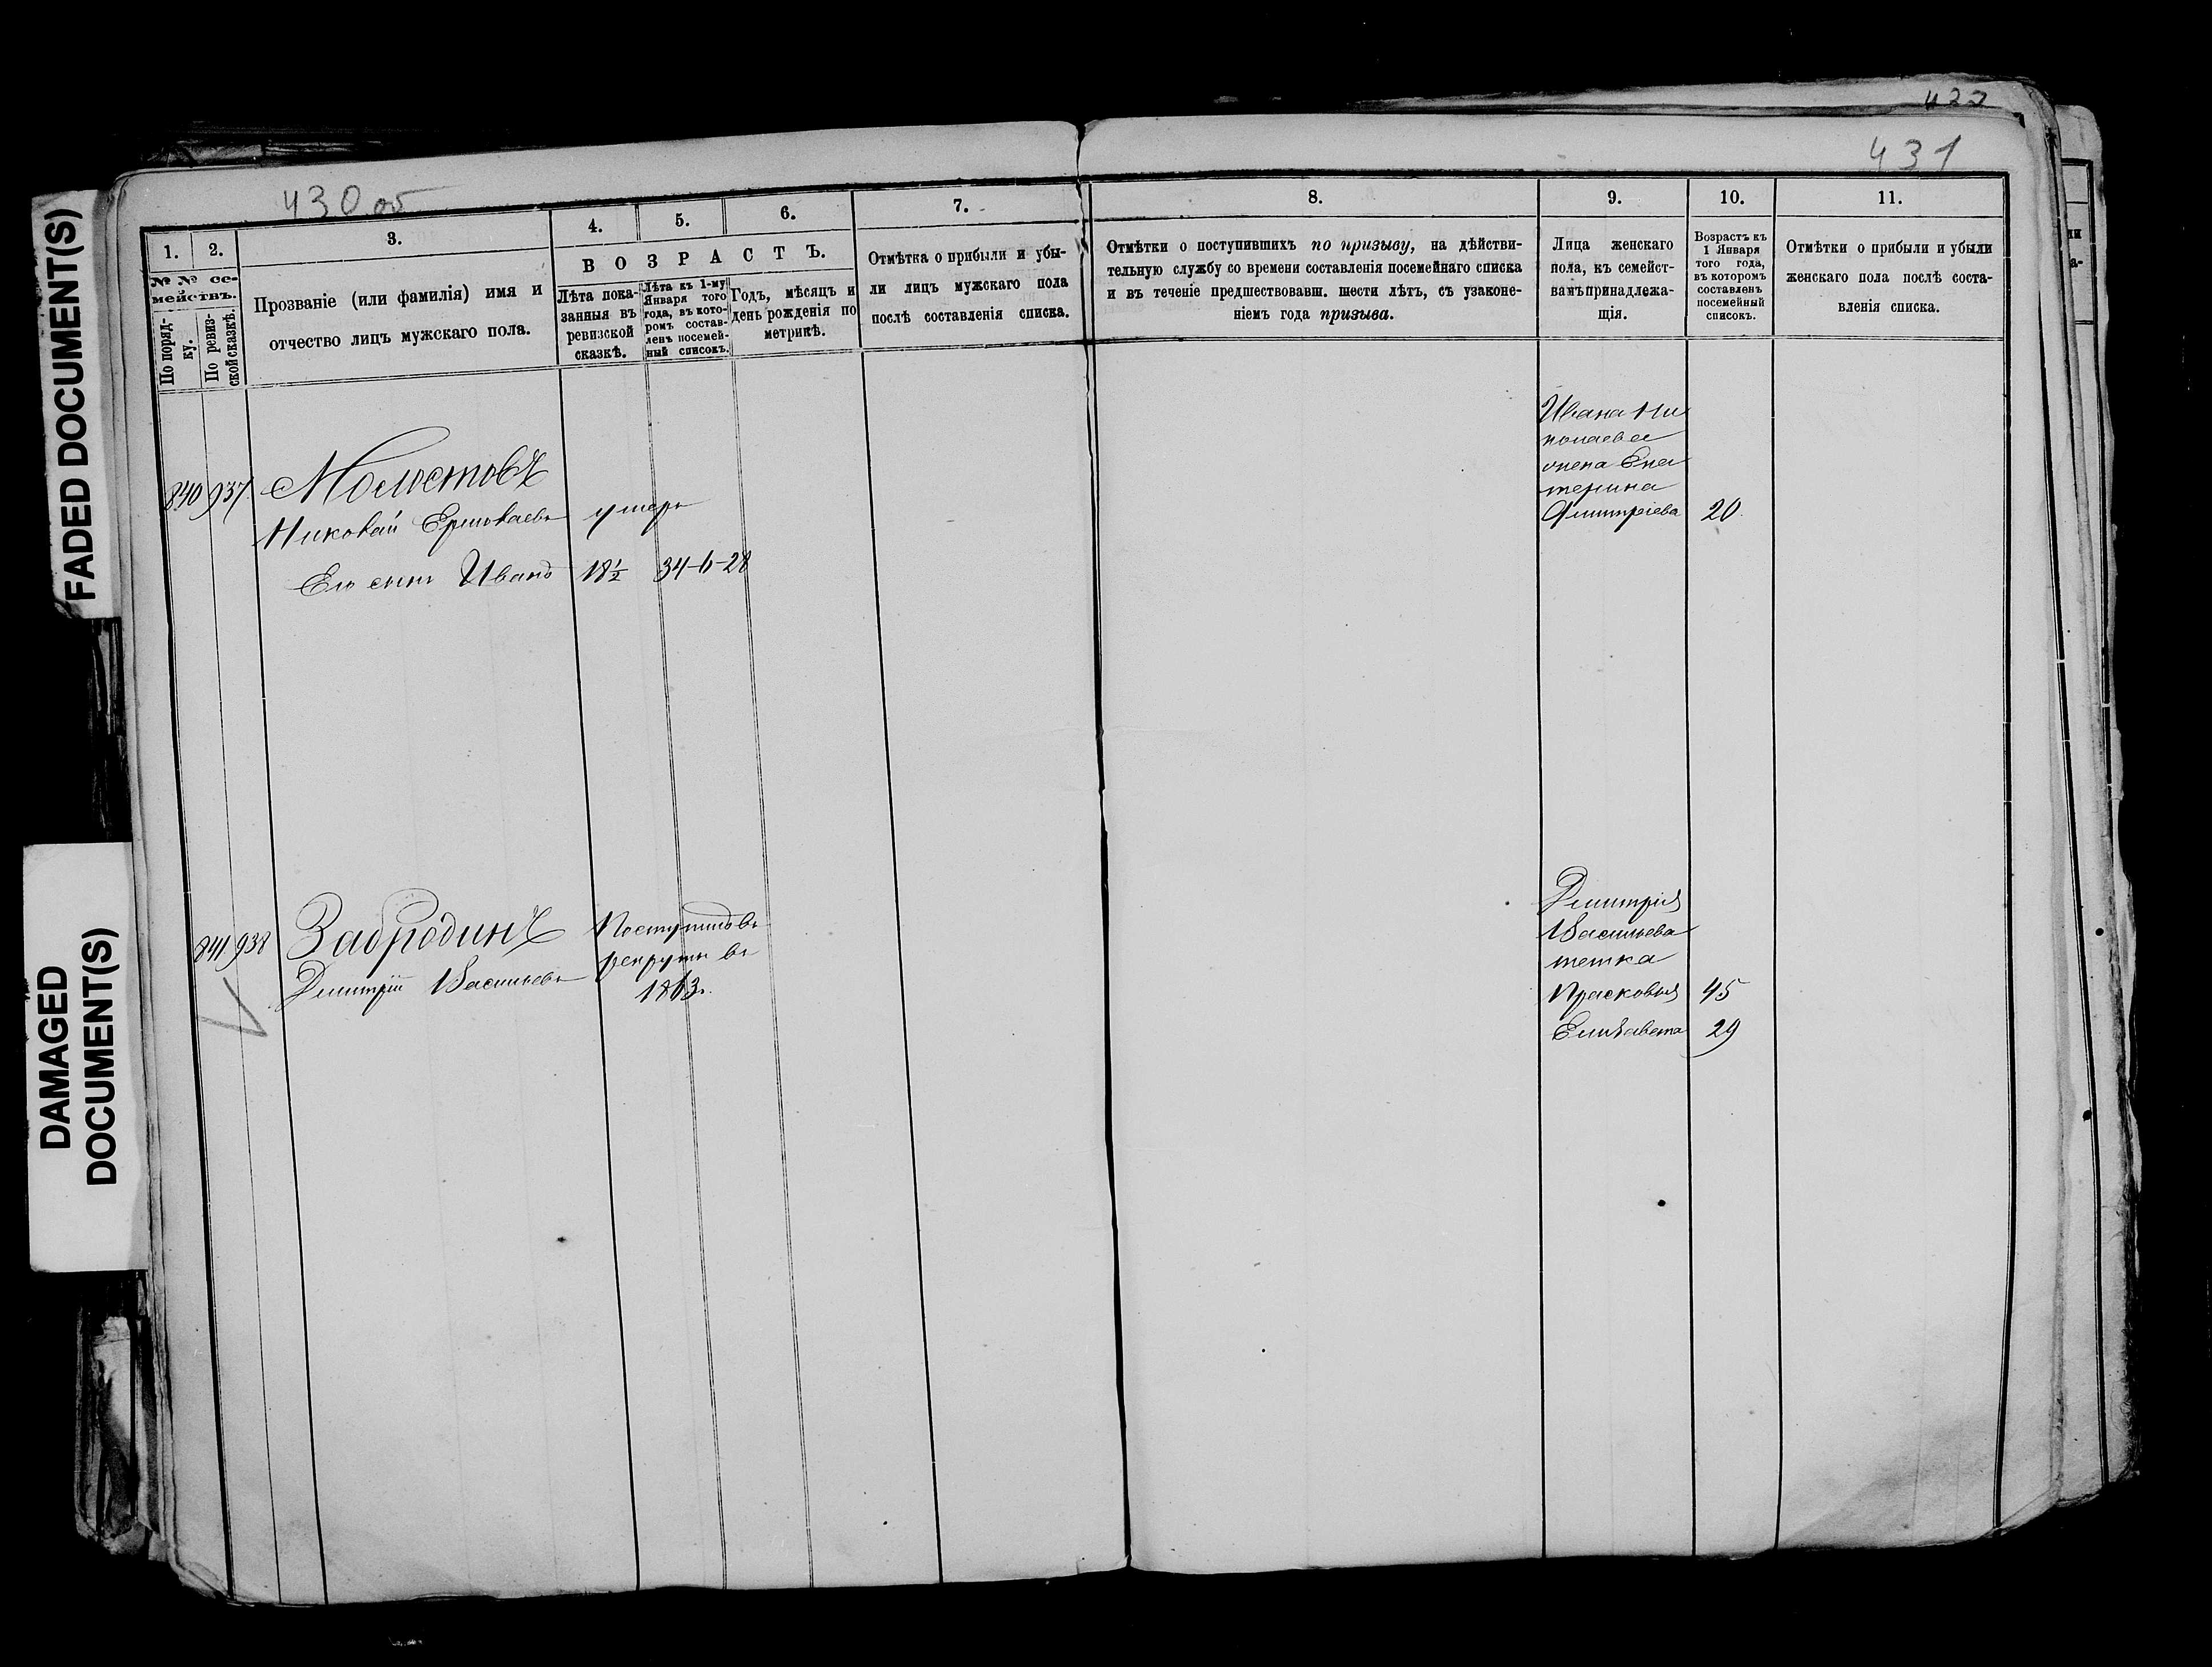 430 об
431
FADED DOCUMENT(S)
DAMAGED
DOCUMENT(S)
1.
2.
3.
4.
5.
6.
7.
8.
9.
10.
11.
№ № се-
мействъ.
По поряд-
ку.
По ревиз-
ской сказкѣ.
Прозваніе (или фамилія) имя и
отчество лицъ мужскаго пола.
ВОЗРАСТЪ.
Лѣта пока-
занныя въ
ревизской
сказкѣ.
Лѣта къ 1-му
Января того
года, въ кото-
ромъ состав-
ленъ посемей-
ный списокъ.
Годъ, мѣсяцъ и
день рожденія по
метрикѣ.
Отмѣтка о прибыли и убы-
ли лицъ мужскаго пола
послѣ составленія списка.
Отмѣтки о поступившихъ по призыву, на дѣйстви-
тельную службу со времени составленія посемейнаго списка
и въ теченіе предшествовавш. шести лѣтъ, съ узаконе-
ніемъ года призыва.
Лица женскаго
пола, къ семейст-
вамъ принадлежа-
щія.
Возрастъ къ
1 Января
того года,
въ которомъ
составленъ
посемейный
списокъ.
Отмѣтки о прибыли и убыли
женскаго пола послѣ соста-
вленія списка.
840 937 Молостовъ
Николай Ермолаевъ умеръ
Его сынъ Иванъ 18½ 34-6-28
Ивана Ни
колаева
жена Ека
терина
Дмитріева 20
841 938 Забродинъ
Дмитрій Васильевъ
Поступилъ въ
рекруты въ
1863г.
Дмитрія
Васильева
тетка
Прасковья 45
Елизавета 29